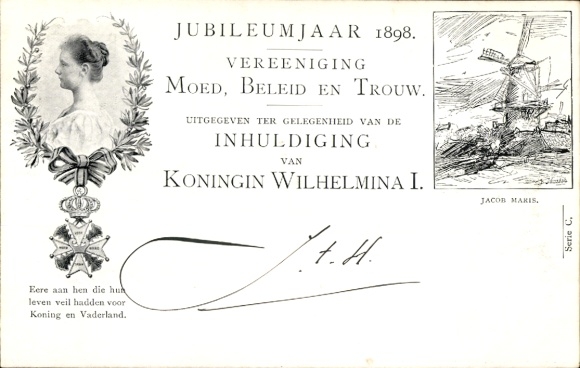 JUBILEUMJAAR 1898.
VEREENIGING
MOED, BELEID EN TROUW.
UITGEGEVEN TER GELEGENHEID VAN DE
INHULDIGING
VAN
KONINGIN WILHELMINA I.
JACOB MARIS.
Serie C,
Eere aan hen die hun
leven veil hadden voor
Koning en Vaderland.
J. t. H.